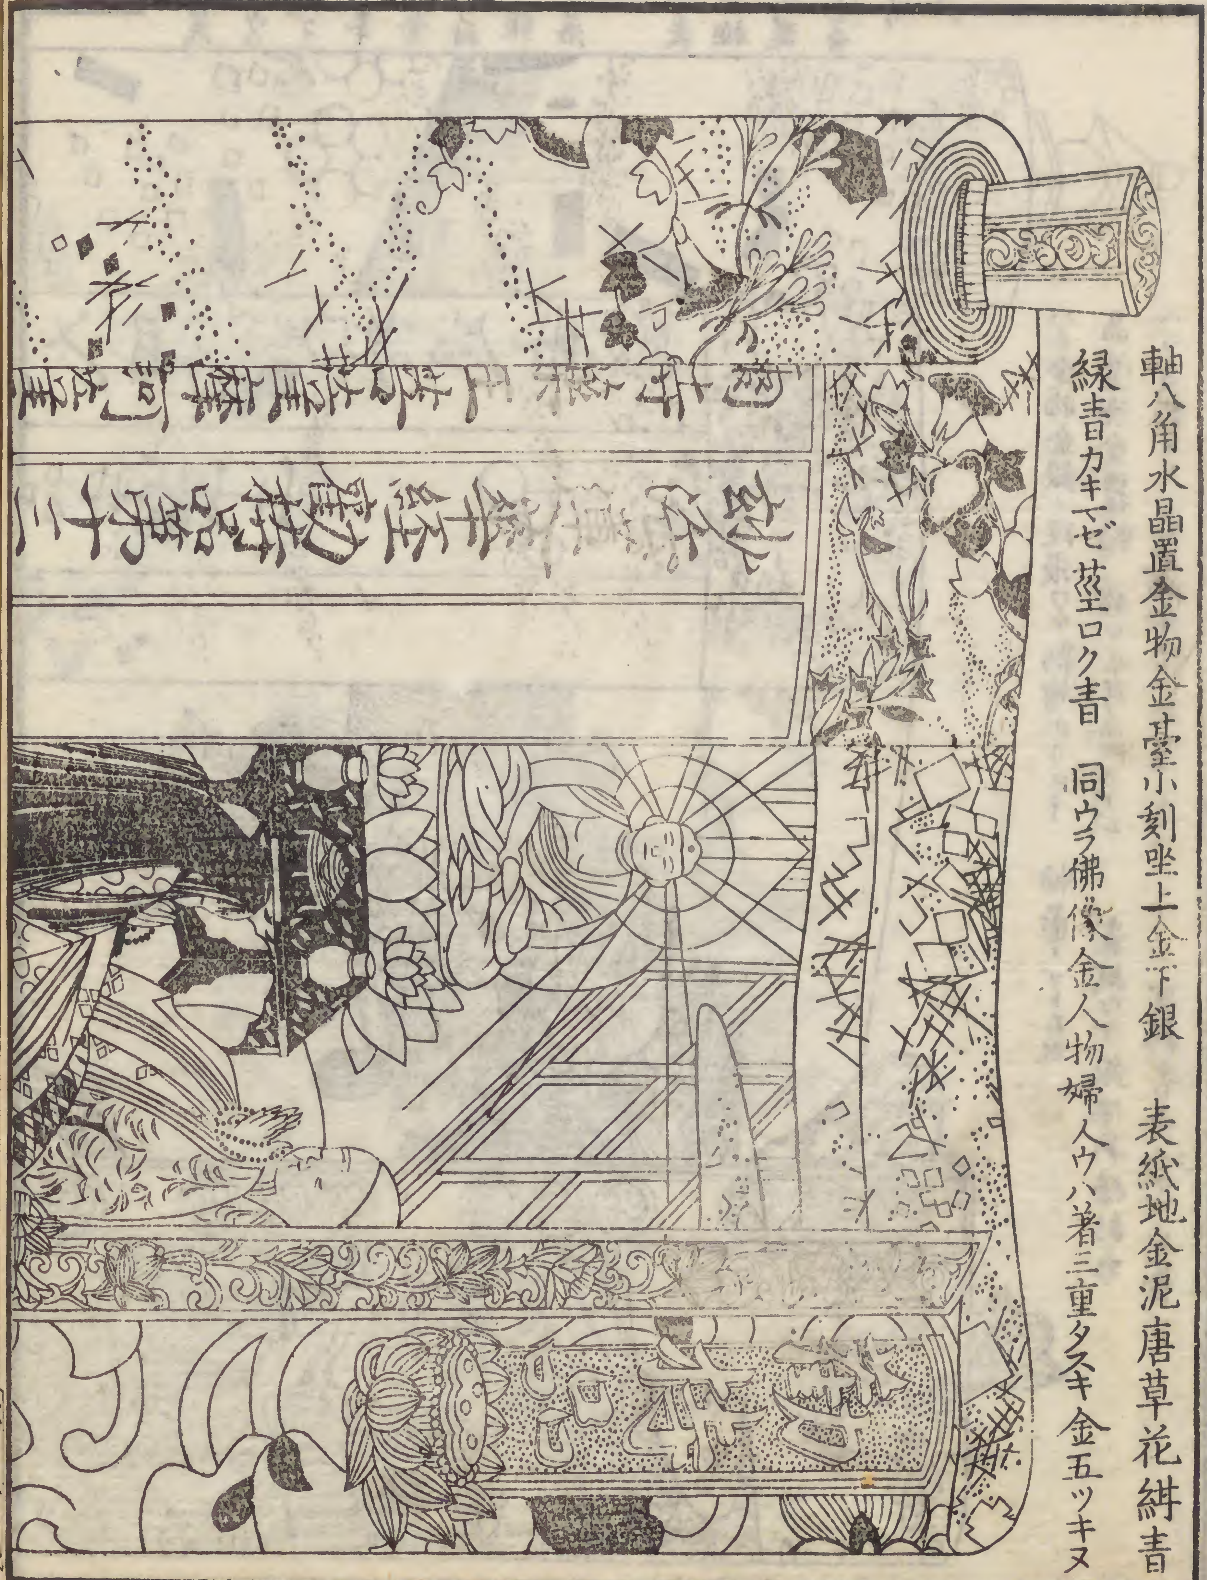 軸八角水晶置金物金臺小刻坐上金下銀　表紙地金泥唐草花紺青
緑青カキマゼ茎ロク青　同ウラ佛像金人物婦人ウハ着三重タスキ金五ツキヌ
妙法蓮華經勸持品第十三
勸持品